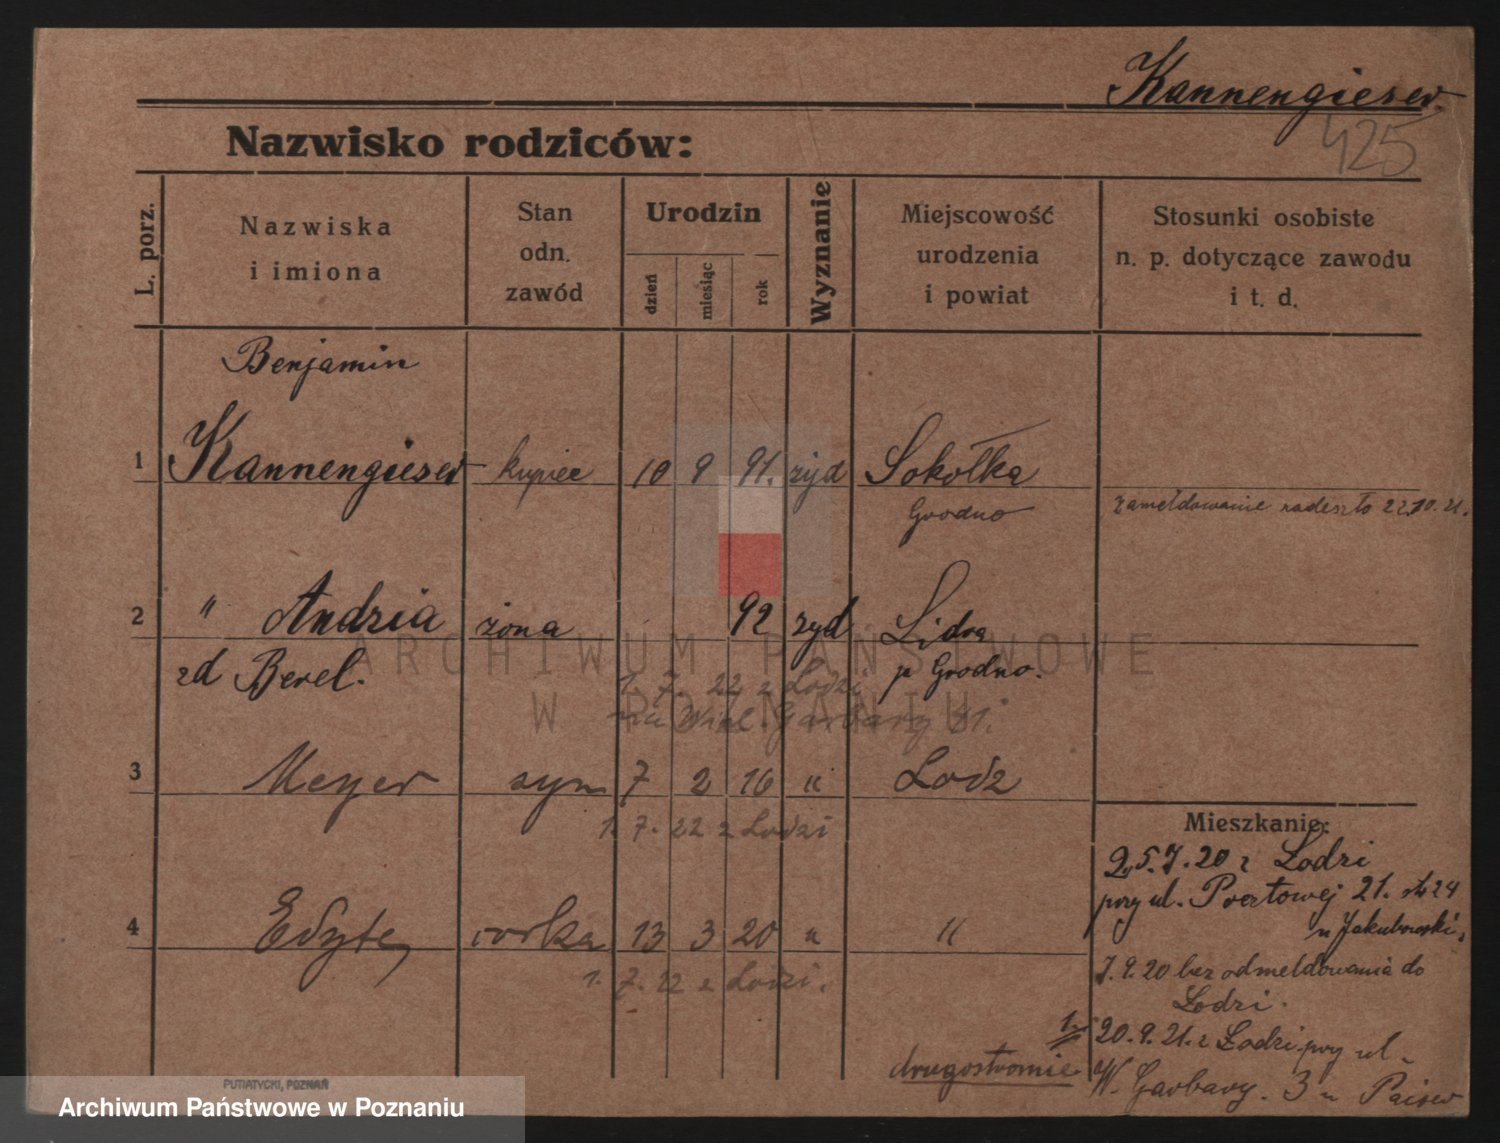 Kannengieser
425
Nazwisko rodziców:
L. porz.
Nazwiska
i imiona
Stan
odn.
zawód
Urodzin
dzień
miesiąc
rok
Wyznanie
Miejscowość
urodzenia
i powiat
Stosunki osobiste
n. p. dotyczące zawodu
i t. d.
Benjamin
1 Kannengieser kupiec 10 9 91. żyd Sokółka
Grodno
zameldowanie nadeszło 22.10.21.
2 " Andzia żona 92 żyd Lida
zd Berel. p Grodno.
1. 7. 22 z Lodzi
Wiel. Garbary
3 Meyer syn 7 2 16 " Lodz
1. 7. 22 z Lodzi
Mieszkanie:
25.7.20 z Lodzi
przy ul. Pocztowej 21. 24
u Jakubowski
4 Edyta corka 13 3 20 " "
1. 7. 22 z Lodzi.
7.9.20 bez odmeldowania do
Lodzi.
20.9.21. z Lodzi przy ul
W. Garbary. 3 u
drugostronnie
PUTIATYCKI, POZNAŃ
ARCHIWUM PAŃSTWOWE
W POZNANIU
Archiwum Państwowe w Poznaniu